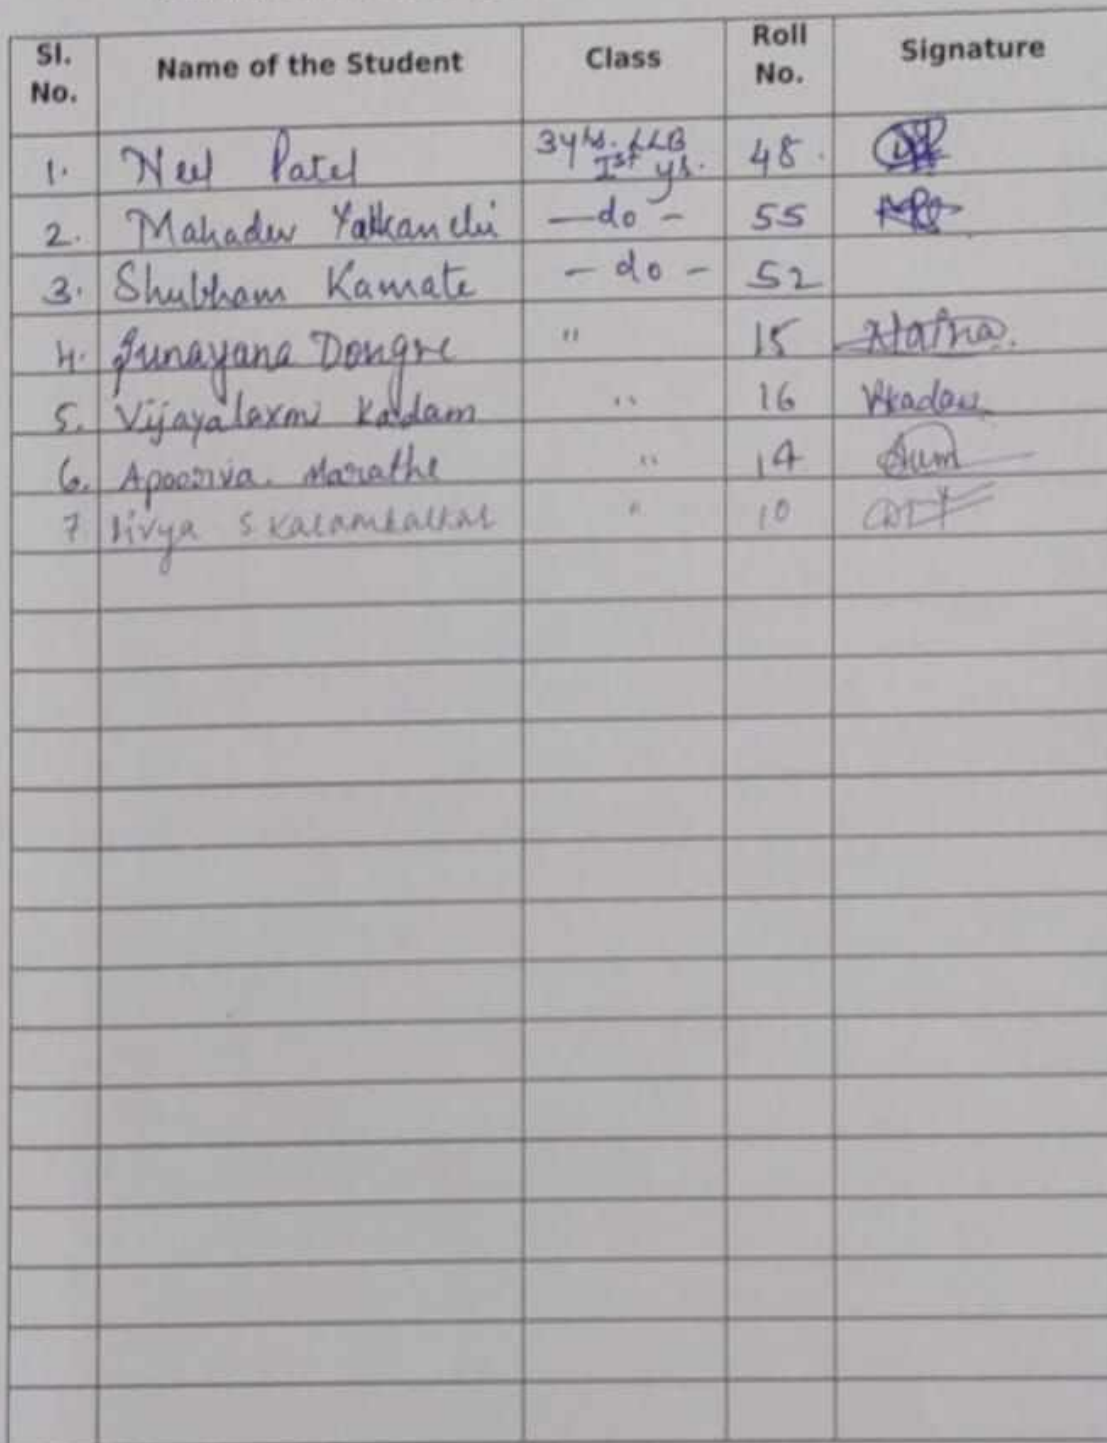 Sl. No. Name of the Student Class Roll No. Signature
1. Neel Patel 3 yrs. LLB Ist yr. 48.
2. Mahadev Yatkanchi —do— 55
3. Shubham Kamate —do— 52
4. Sunayana Dongre " 15
5. Vijayalaxmi Kadam " 16 Vkadam
6. Apoorva. Marathe " 14
7 Divya S " 10